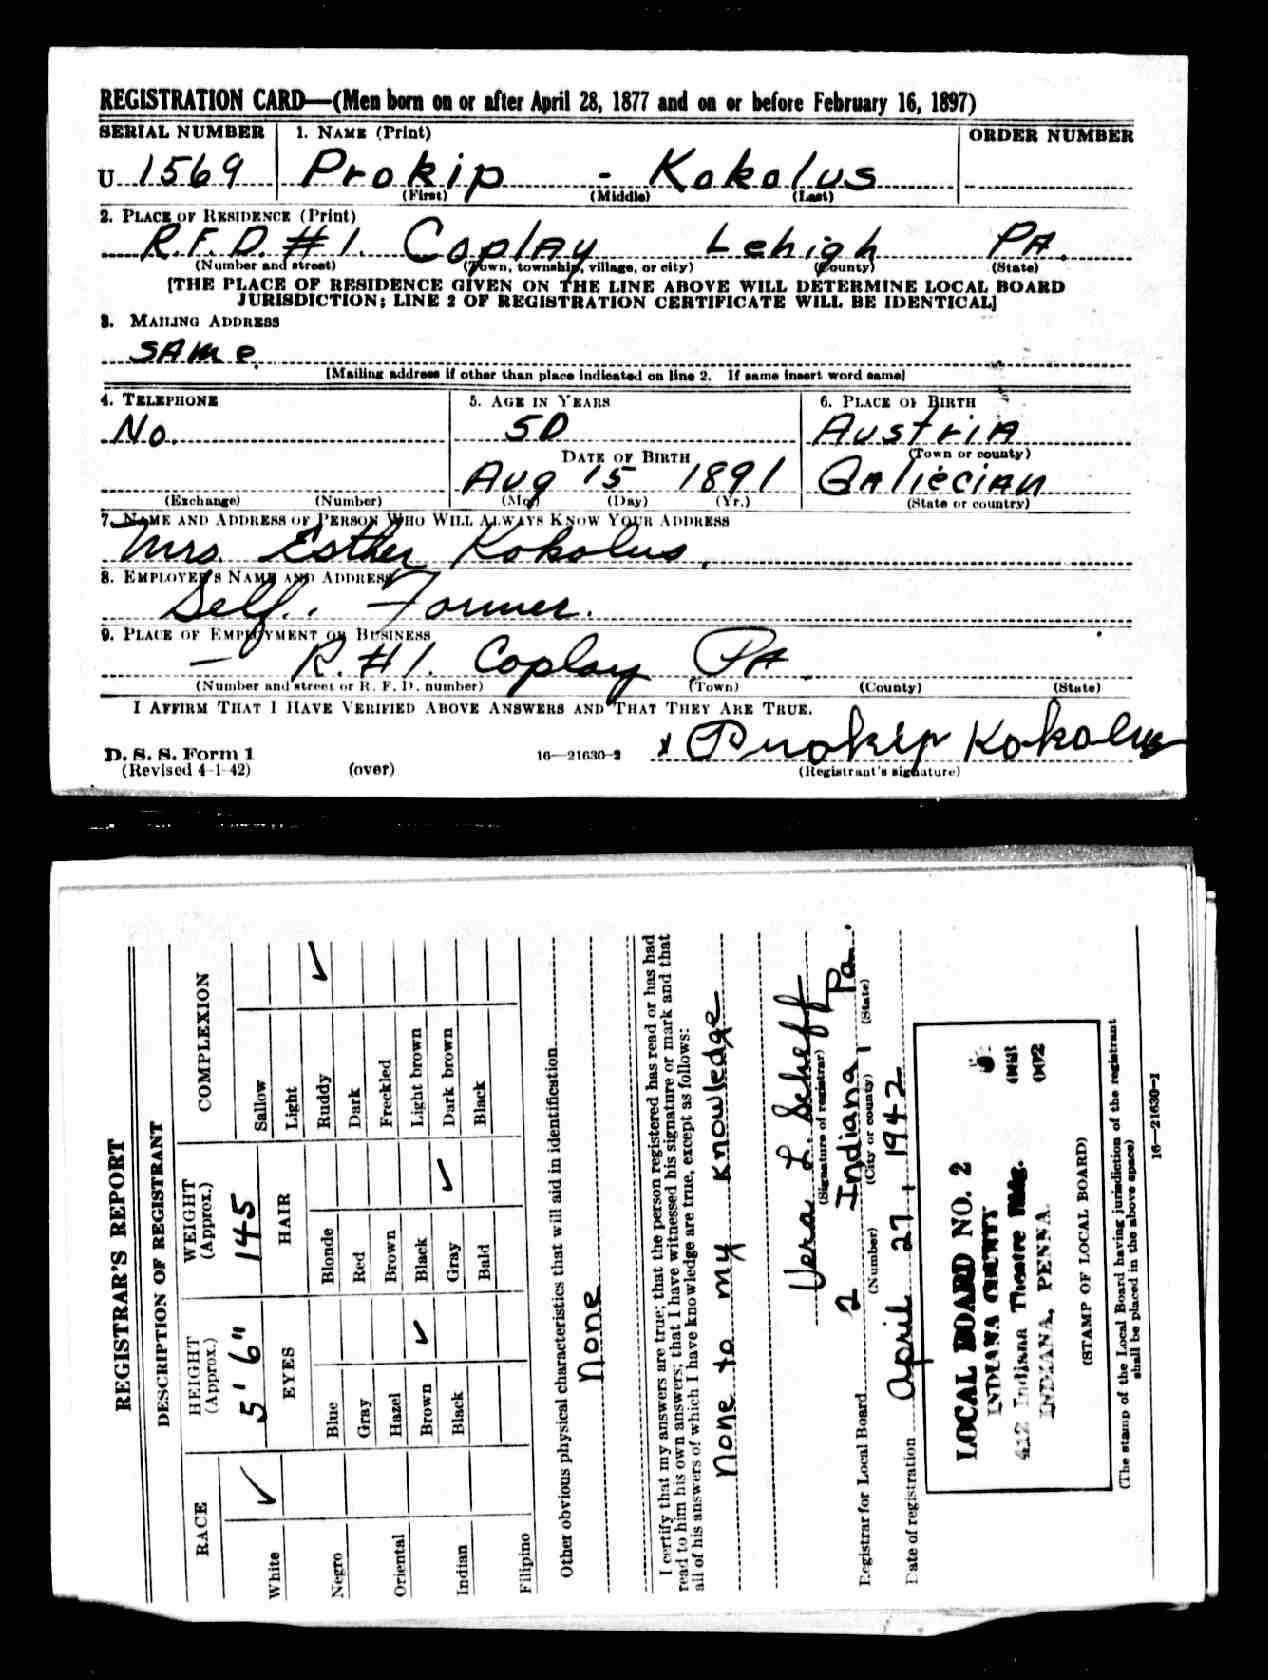 REGISTRATION CARD—(Men born on or after April 28, 1877 and on or before February 16, 1897)
SERIAL NUMBER 1. NAME (Print) ORDER NUMBER
U 1569 Prokip - Kokolus
(First) (Middle) (Last)
2. PLACE OF RESIDENCE (Print)
R.F.D. #1. Coplay Lehigh PA.
(Number and street) (Town, township, village, or city) (County) (State)
[THE PLACE OF RESIDENCE GIVEN ON THE LINE ABOVE WILL DETERMINE LOCAL BOARD
JURISDICTION; LINE 2 OF REGISTRATION CERTIFICATE WILL BE IDENTICAL]
3. MAILING ADDRESS
SAme
[Mailing address if other than place indicated on line 2. If same insert word same]
4. TELEPHONE 5. AGE IN YEARS 6. PLACE OF BIRTH
No. 50 AustriA
DATE OF BIRTH (Town or county)
Aug 15 1891 GAlieciAn
(Exchange) (Number) (Mo.) (Day) (Yr.) (State or country)
7. NAME AND ADDRESS OF PERSON WHO WILL ALWAYS KNOW YOUR ADDRESS
Mrs. Esther Kokolus.
8. EMPLOYER'S NAME AND ADDRESS
Self. Farmer.
9. PLACE OF EMPLOYMENT OR BUSINESS
— R. #1. Coplay PA
(Number and street or R. F. D. number) (Town) (County) (State)
I AFFIRM THAT I HAVE VERIFIED ABOVE ANSWERS AND THAT THEY ARE TRUE.
x Prokip Kokolus
D. S. S. Form 1
(Revised 4-1-42) (over) 16—21630-2 (Registrant's signature)
REGISTRAR'S REPORT
DESCRIPTION OF REGISTRANT
RACE HEIGHT (Approx.) WEIGHT (Approx.) COMPLEXION
5' 6" 145
White ✓ EYES HAIR Sallow
Light
Negro Blue Blonde Ruddy ✓
Gray Red Dark
Oriental Hazel Brown Freckled
Brown ✓ Black Light brown
Indian Black Gray ✓ Dark brown
Bald Black
Filipino
Other obvious physical characteristics that will aid in identification
None
I certify that my answers are true; that the person registered has read or has had
read to him his own answers; that I have witnessed his signature or mark and that
all of his answers of which I have knowledge are true, except as follows:
None to my knowledge
Vera L. Scheff
(Signature of registrar)
Registrar for Local Board 2 Indiana Pa.
(Number) (City or county) (State)
Date of registration April 27, 1942
LOCAL BOARD NO. 2
INDIANA COUNTY
412 Indiana Theatre Bldg.
INDIANA, PENNA.
002
(STAMP OF LOCAL BOARD)
(The stamp of the Local Board having jurisdiction of the registrant
shall be placed in the above space)
16—21630-1